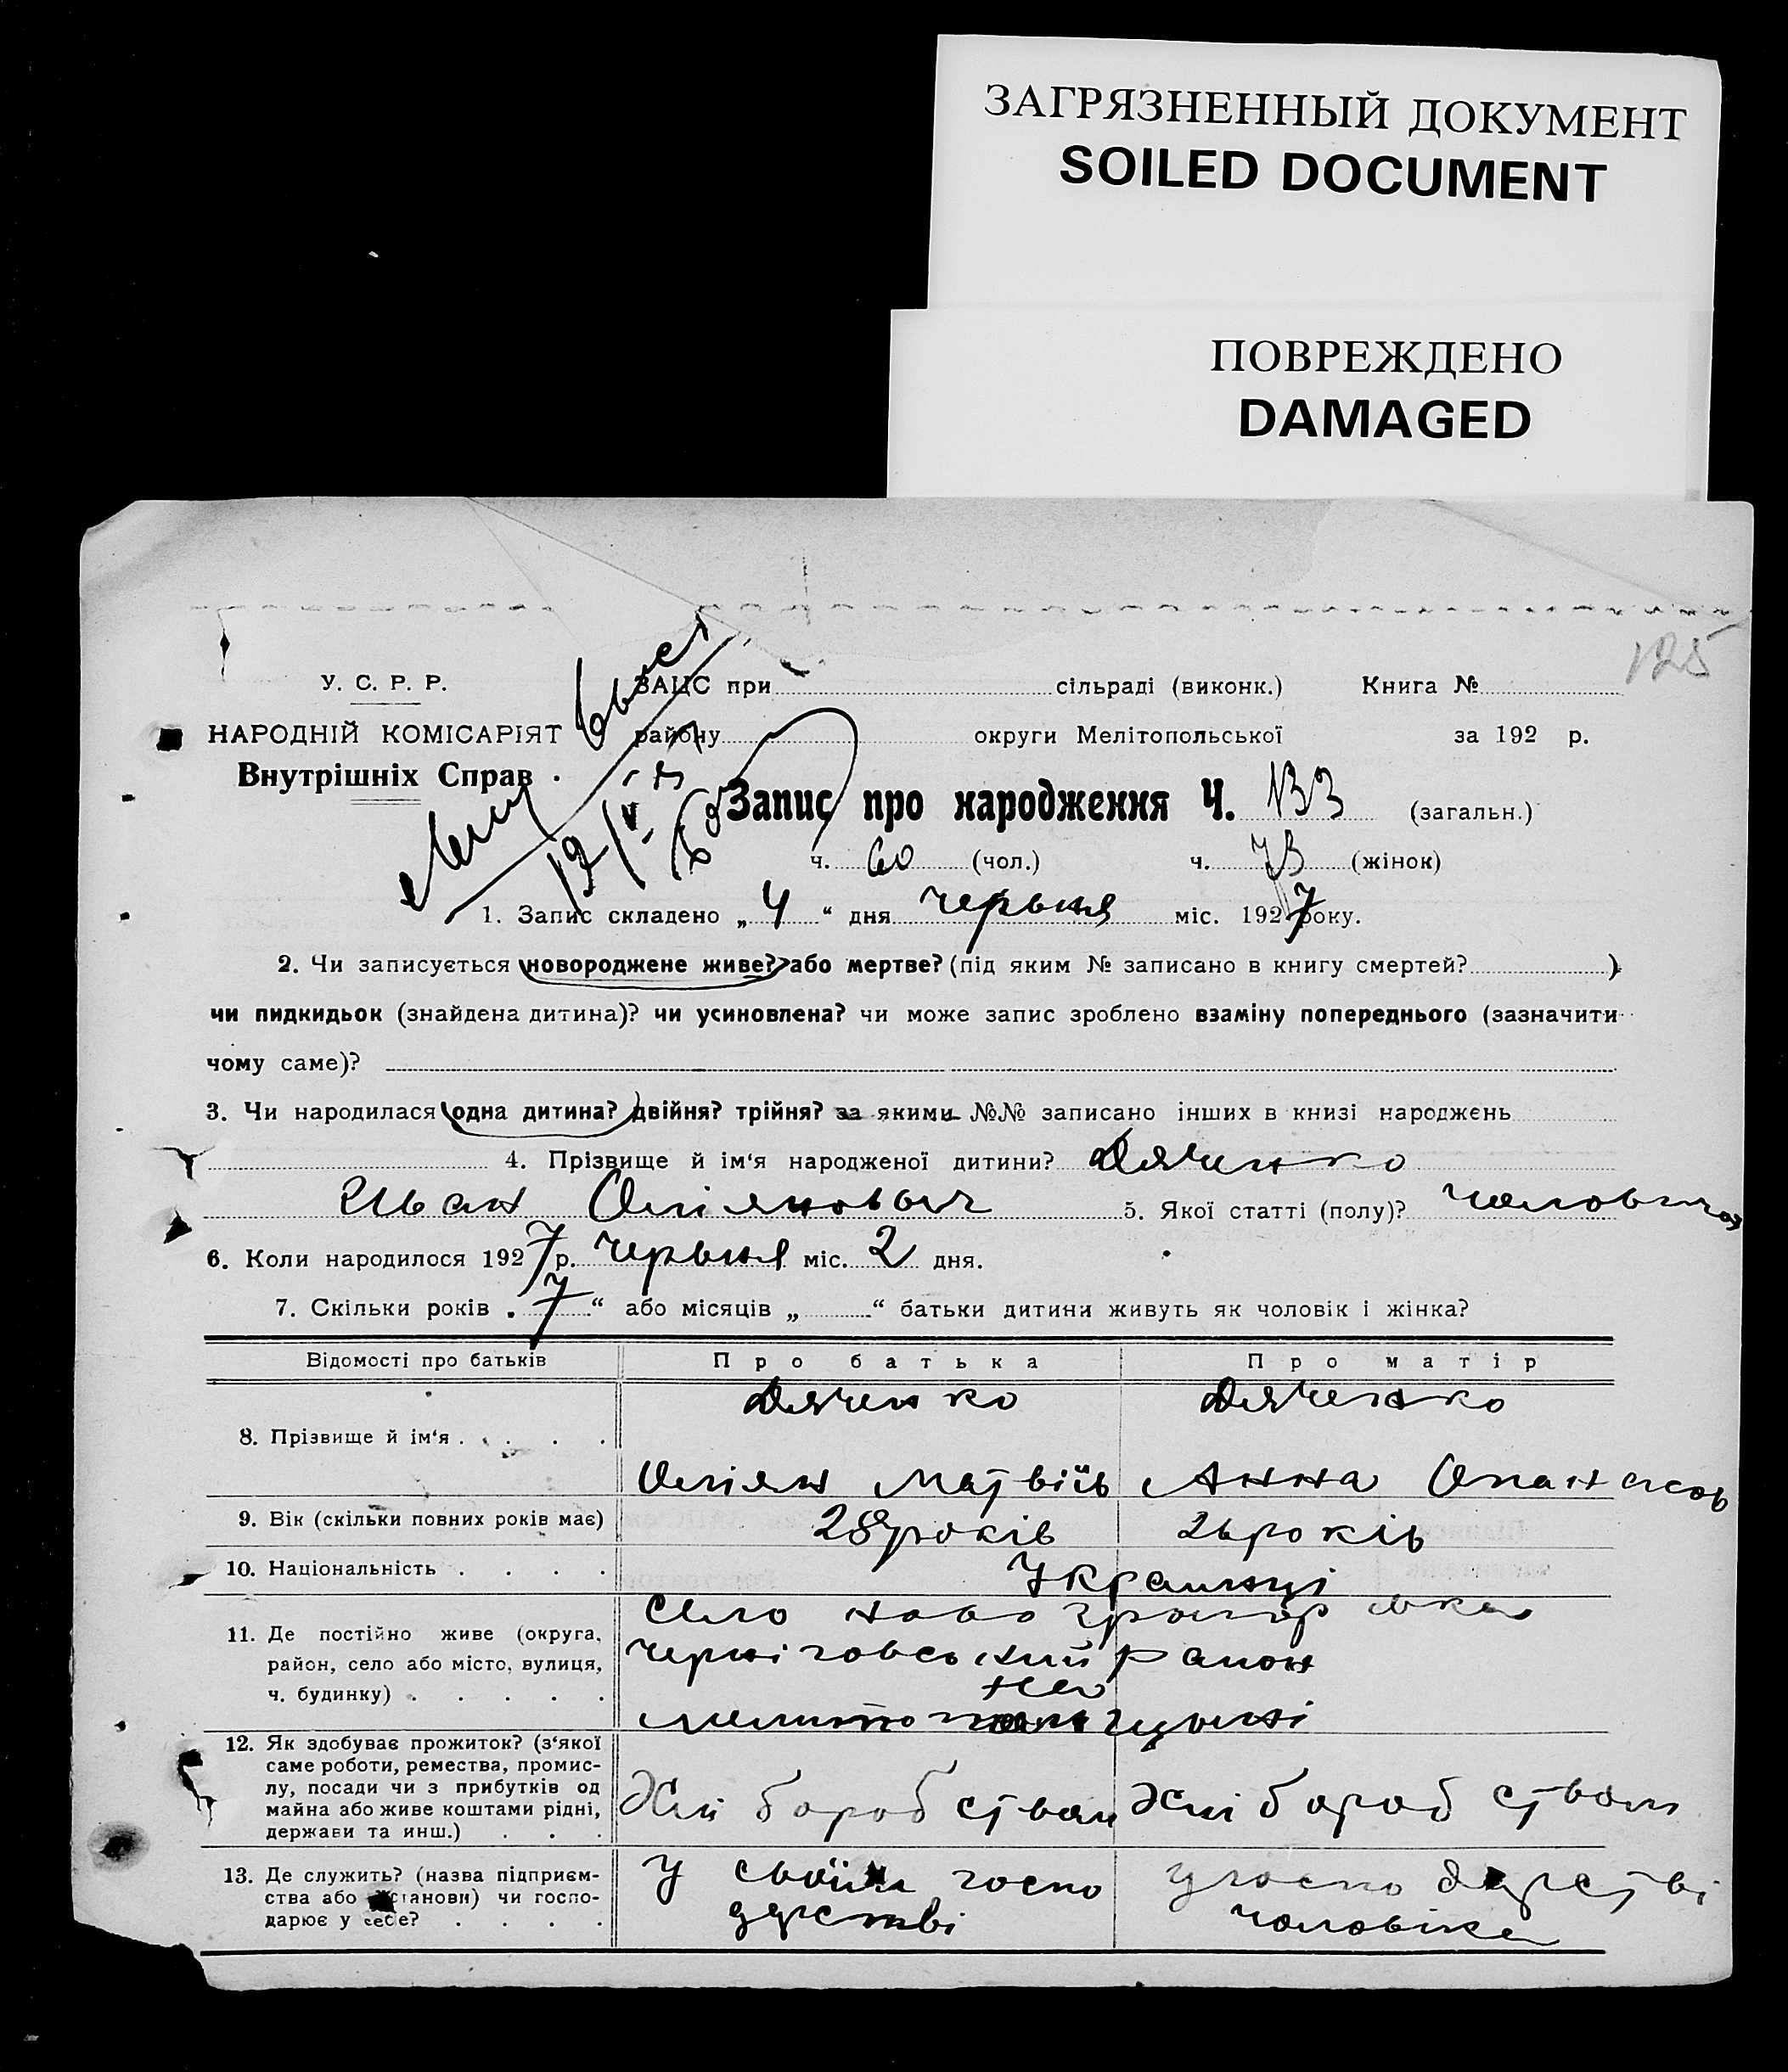 ЗАГРЯЗНЕННЫЙ ДОКУМЕНТ
SOILED DOCUMENT
ПОВРЕЖДЕНО
DAMAGED
125
У. С. Р. Р.
ЗАЦС при сільраді (виконк.) Книга №
НАРОДНІЙ КОМІСАРІЯТ
району округи Мелітопольської за 192 р.
Внутрішніх Справ
Запис про народження Ч. 133 (загальн.)
ч. 60 (чол.) ч. 73 (жінок)
1. Запис складено „ 4 “ дня червня міс. 1927 року.
2. Чи записується новороджене живе? або мертве? (під яким № записано в книгу смертей? )
чи пидкидьок (знайдена дитина)? чи усиновлена? чи може запис зроблено взаміну попереднього (зазначити
чому саме)?
3. Чи народилася одна дитина? двійня? трійня? за якими №№ записано інших в книзі народжень
4. Прізвище й ім‘я народженої дитини? Дяченко
Иван Омілянович 5. Якої статті (полу)?
6. Коли народилося 1927 р. червня міс. 2 дня.
7. Скільки років „ 7 “ або місяців „ “ батьки дитини живуть як чоловік і жінка?
Відомості про батьків Про батька Про матір
Дяченко Дяченко
8. Прізвище й ім‘я
Омілян Матвіїв Анна Опанасов
9. Вік (скільки повних років має) 28 років 26 років
10. Національність Украінці
11. Де постійно живе (округа, район, село або місто, вулиця, ч. будинку)
село ново григоровка
черніговський район
на
мелитопольщыні
12. Як здобуває прожиток? (з‘якої саме роботи, ремества, промислу, посади чи з прибутків од майна або живе коштами рідні, держави та инш.)
Хліборобством Хліборобством
13. Де служить? (назва підприємства або установи) чи господарює у себе?
У своїм господарстві
у господарстві чоловіка